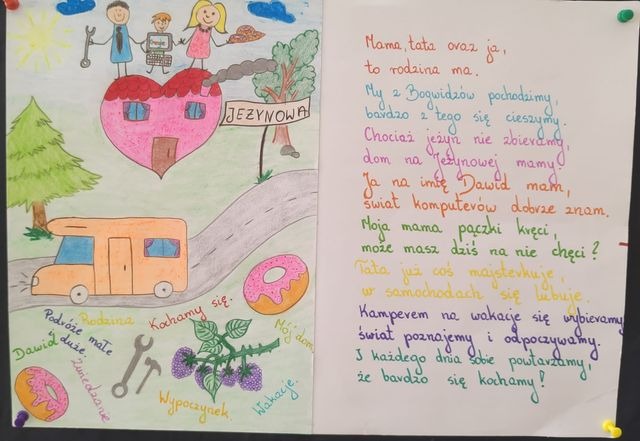 JEŻYNOWA
Rodzina
Kochamy się.
Mój dom
Podróże małe
i duże.
Dawid
Zwiedzanie
Wypoczynek.
Wakacje.
Mama, tata oraz ja,
to rodzina ma.
My z Bogwidzów pochodzimy,
bardzo z tego się cieszymy.
Chociaż jeżyn nie zbieramy,
dom na Jeżynowej mamy.
Ja na imię Dawid mam,
świat komputerów dobrze znam.
Moja mama pączki kręci,
może masz dziś na nie chęci?
Tata już coś majsterkuje,
w samochodach się lubuje.
Kamperem na wakacje się wybieramy
świat poznajemy i odpoczywamy.
I każdego dnia sobie powtarzamy,
że bardzo się kochamy!